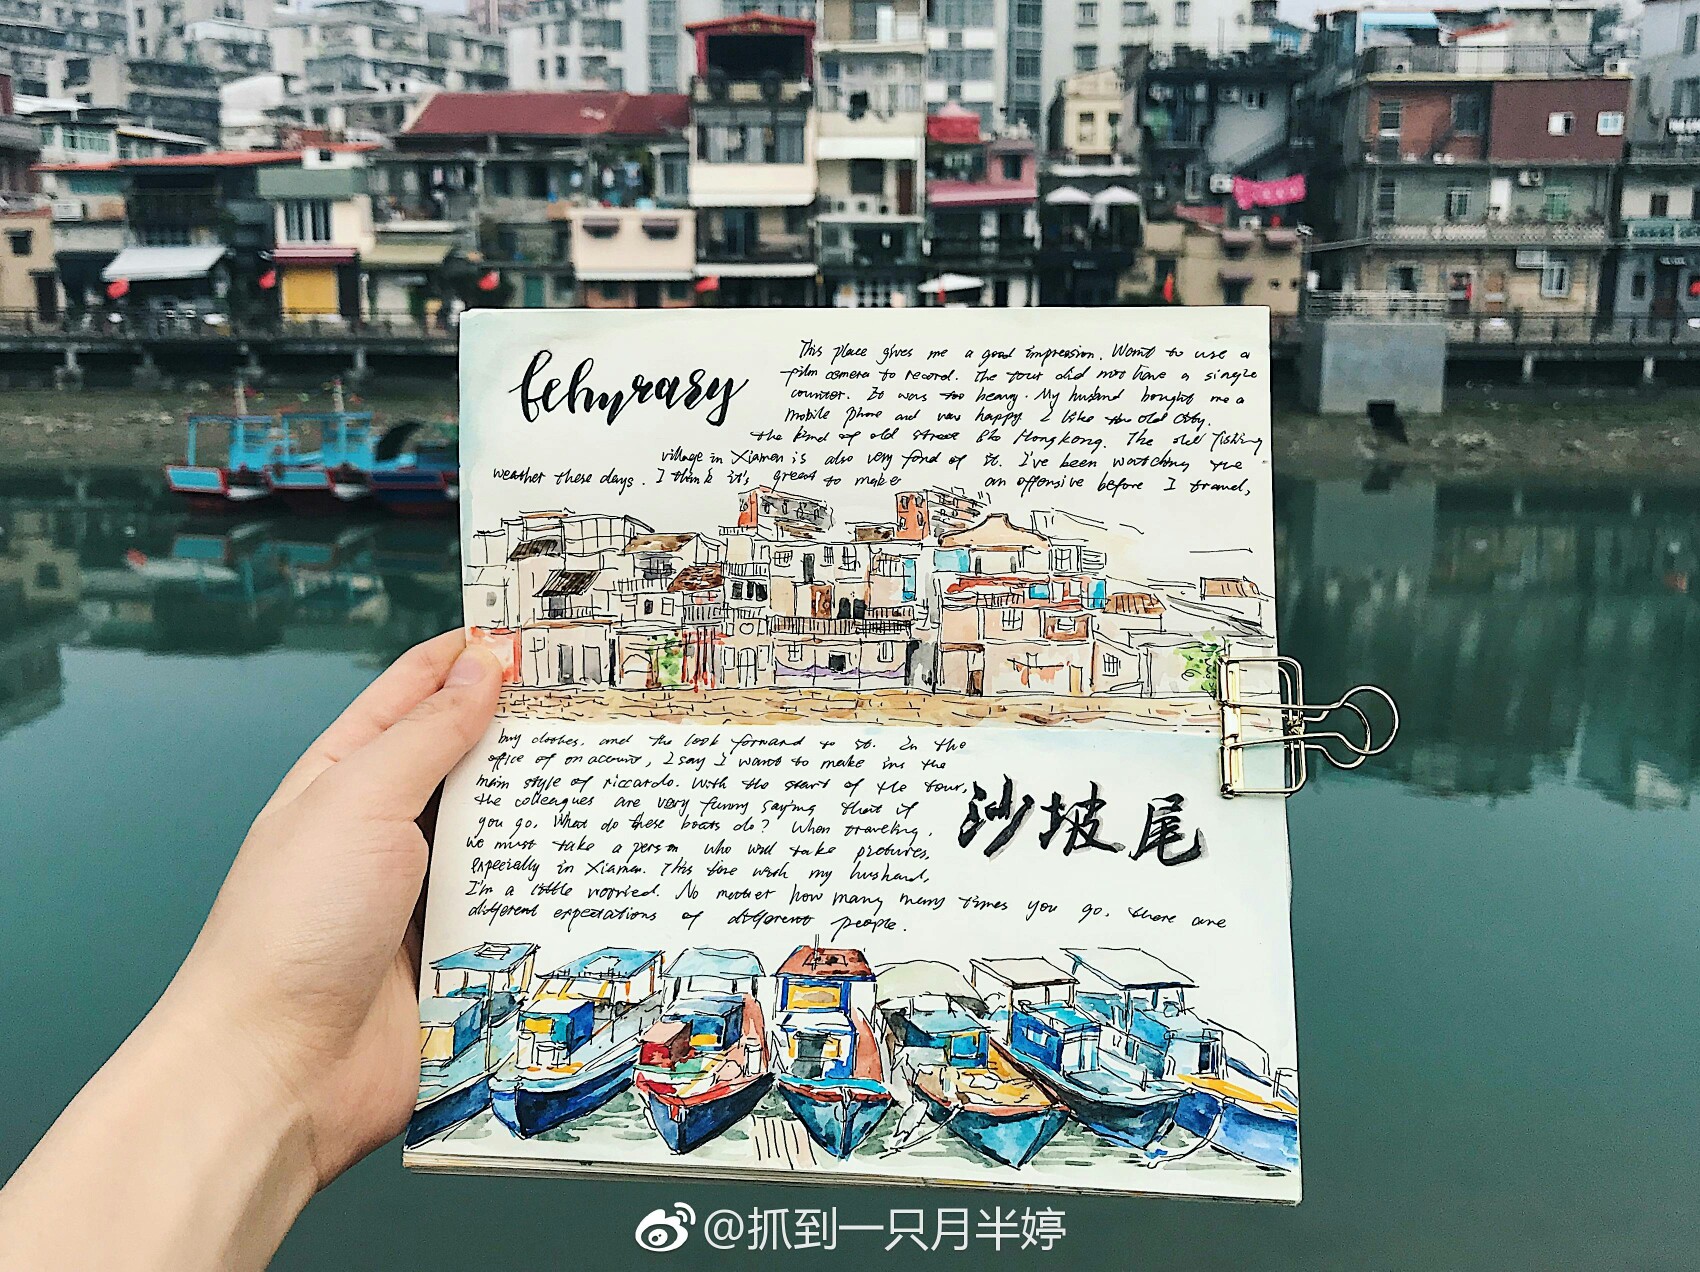 fehurary
This place gives me a good impression. Want to use a
film camera to record. The tour did not have a single
counter. It was too heavy. My husband bought me a
mobile phone and very happy I like the old city.
the kind of old street like Hongkong. The old fishing
village in Xiamen is also very fond of it. I've been watching the
weather these days. I think it's great to make an offensive before I travel,
buy clothes, and the look forward to it. In the
office of on account, I say I want to make ins the
main style of riccardo. With the start of the tour,
the colleagues are very funny saying that if
you go. What do these boats do? When traveling,
we must take a person who will take pictures,
especially in Xiamen. This time with my husband,
I'm a little worried. No matter how many many times you go, there are
different expectations of different people.
沙坡尾
@抓到一只月半婷